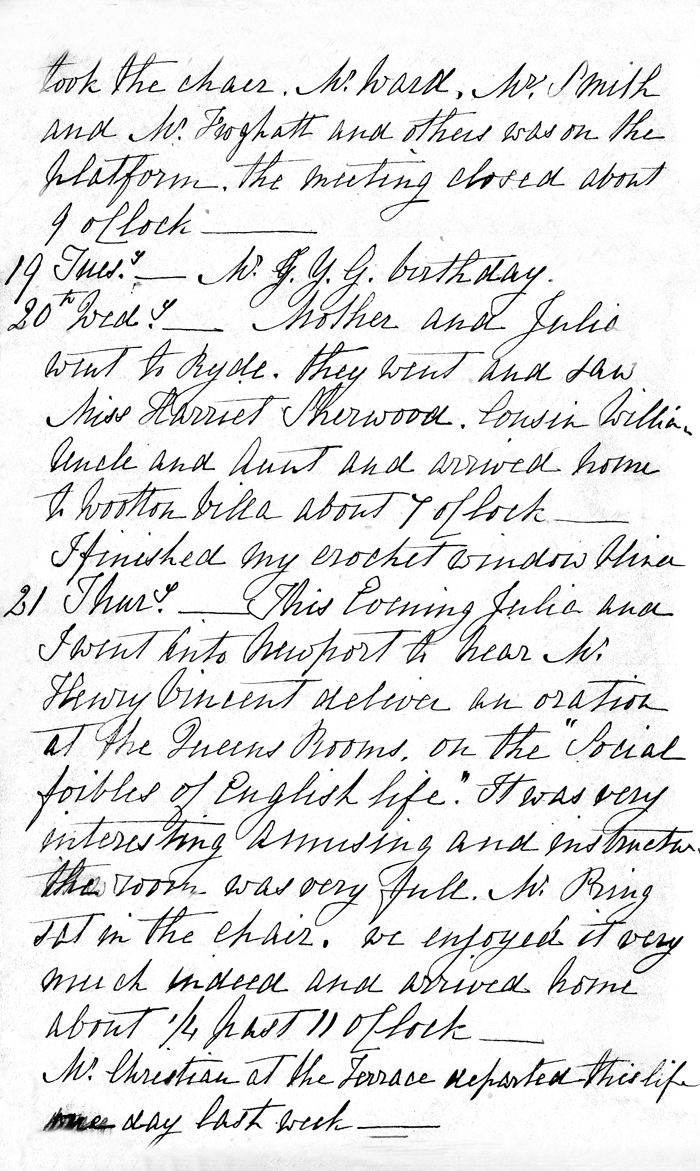 took the chair. Mr. Ward, Mr. Smith
and Mr. Froghatt and others was on the
platform. the meeting closed about
9 oClock ———
19 Tues.y — Mr. G. Y. G. birthday.
20th Wed.y — Mother and Julia
went to Ryde. they went and saw
Miss Harriet Sherwood. Cousin William
Uncle and Aunt and arrived home
to Wootton Villa about 7 oClock —
I finished my crochet window blind
21 Thur.y — This Evening Julia and
I went into Newport to hear Mr.
Henry Vincent deliver an oration
at the Queens Rooms, on the "Social
foibles of English life." It was very
interesting Amusing and instructive
the room was very full. Mr. Pring
sat in the chair. we enjoyed it very
much indeed and arrived home
about 1/4 past 11 oClock —
Mr. Christian at the Terrace departed this life
one day last week —